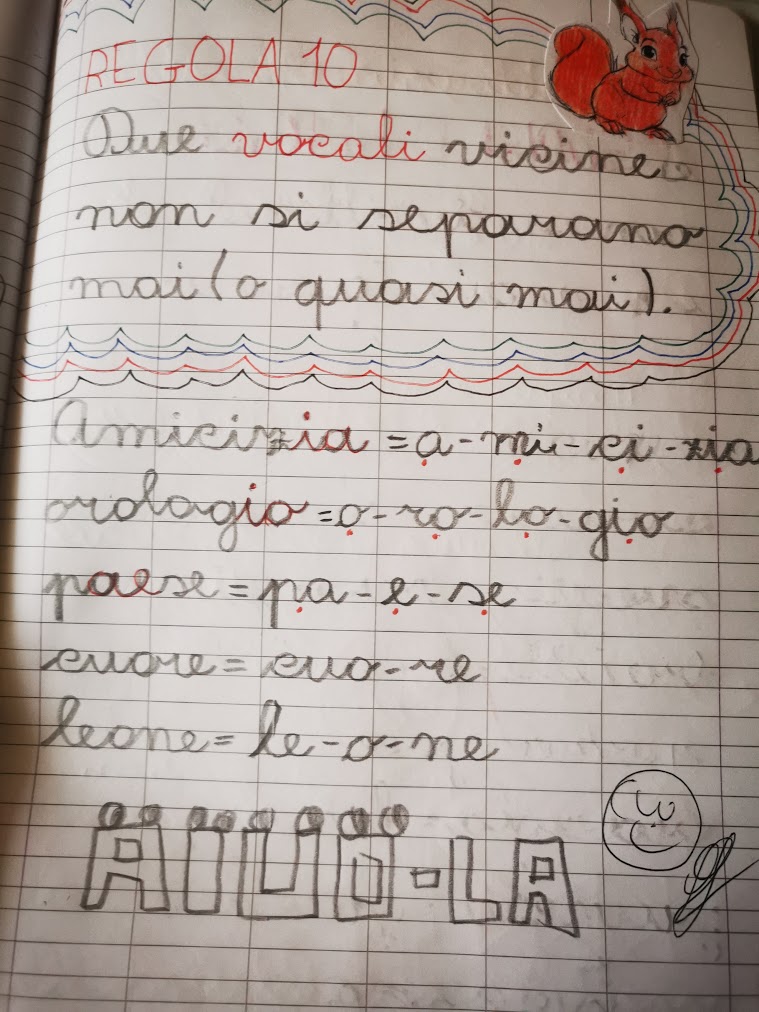 REGOLA 10
Due vocali vicine
non si separano
mai (o quasi mai).
Amicizia = a-mi-ci-zia
orologio = o-ro-lo-gio
paese = pa-e-se
cuore = cuo-re
leone = le-o-ne
AIUO-LA